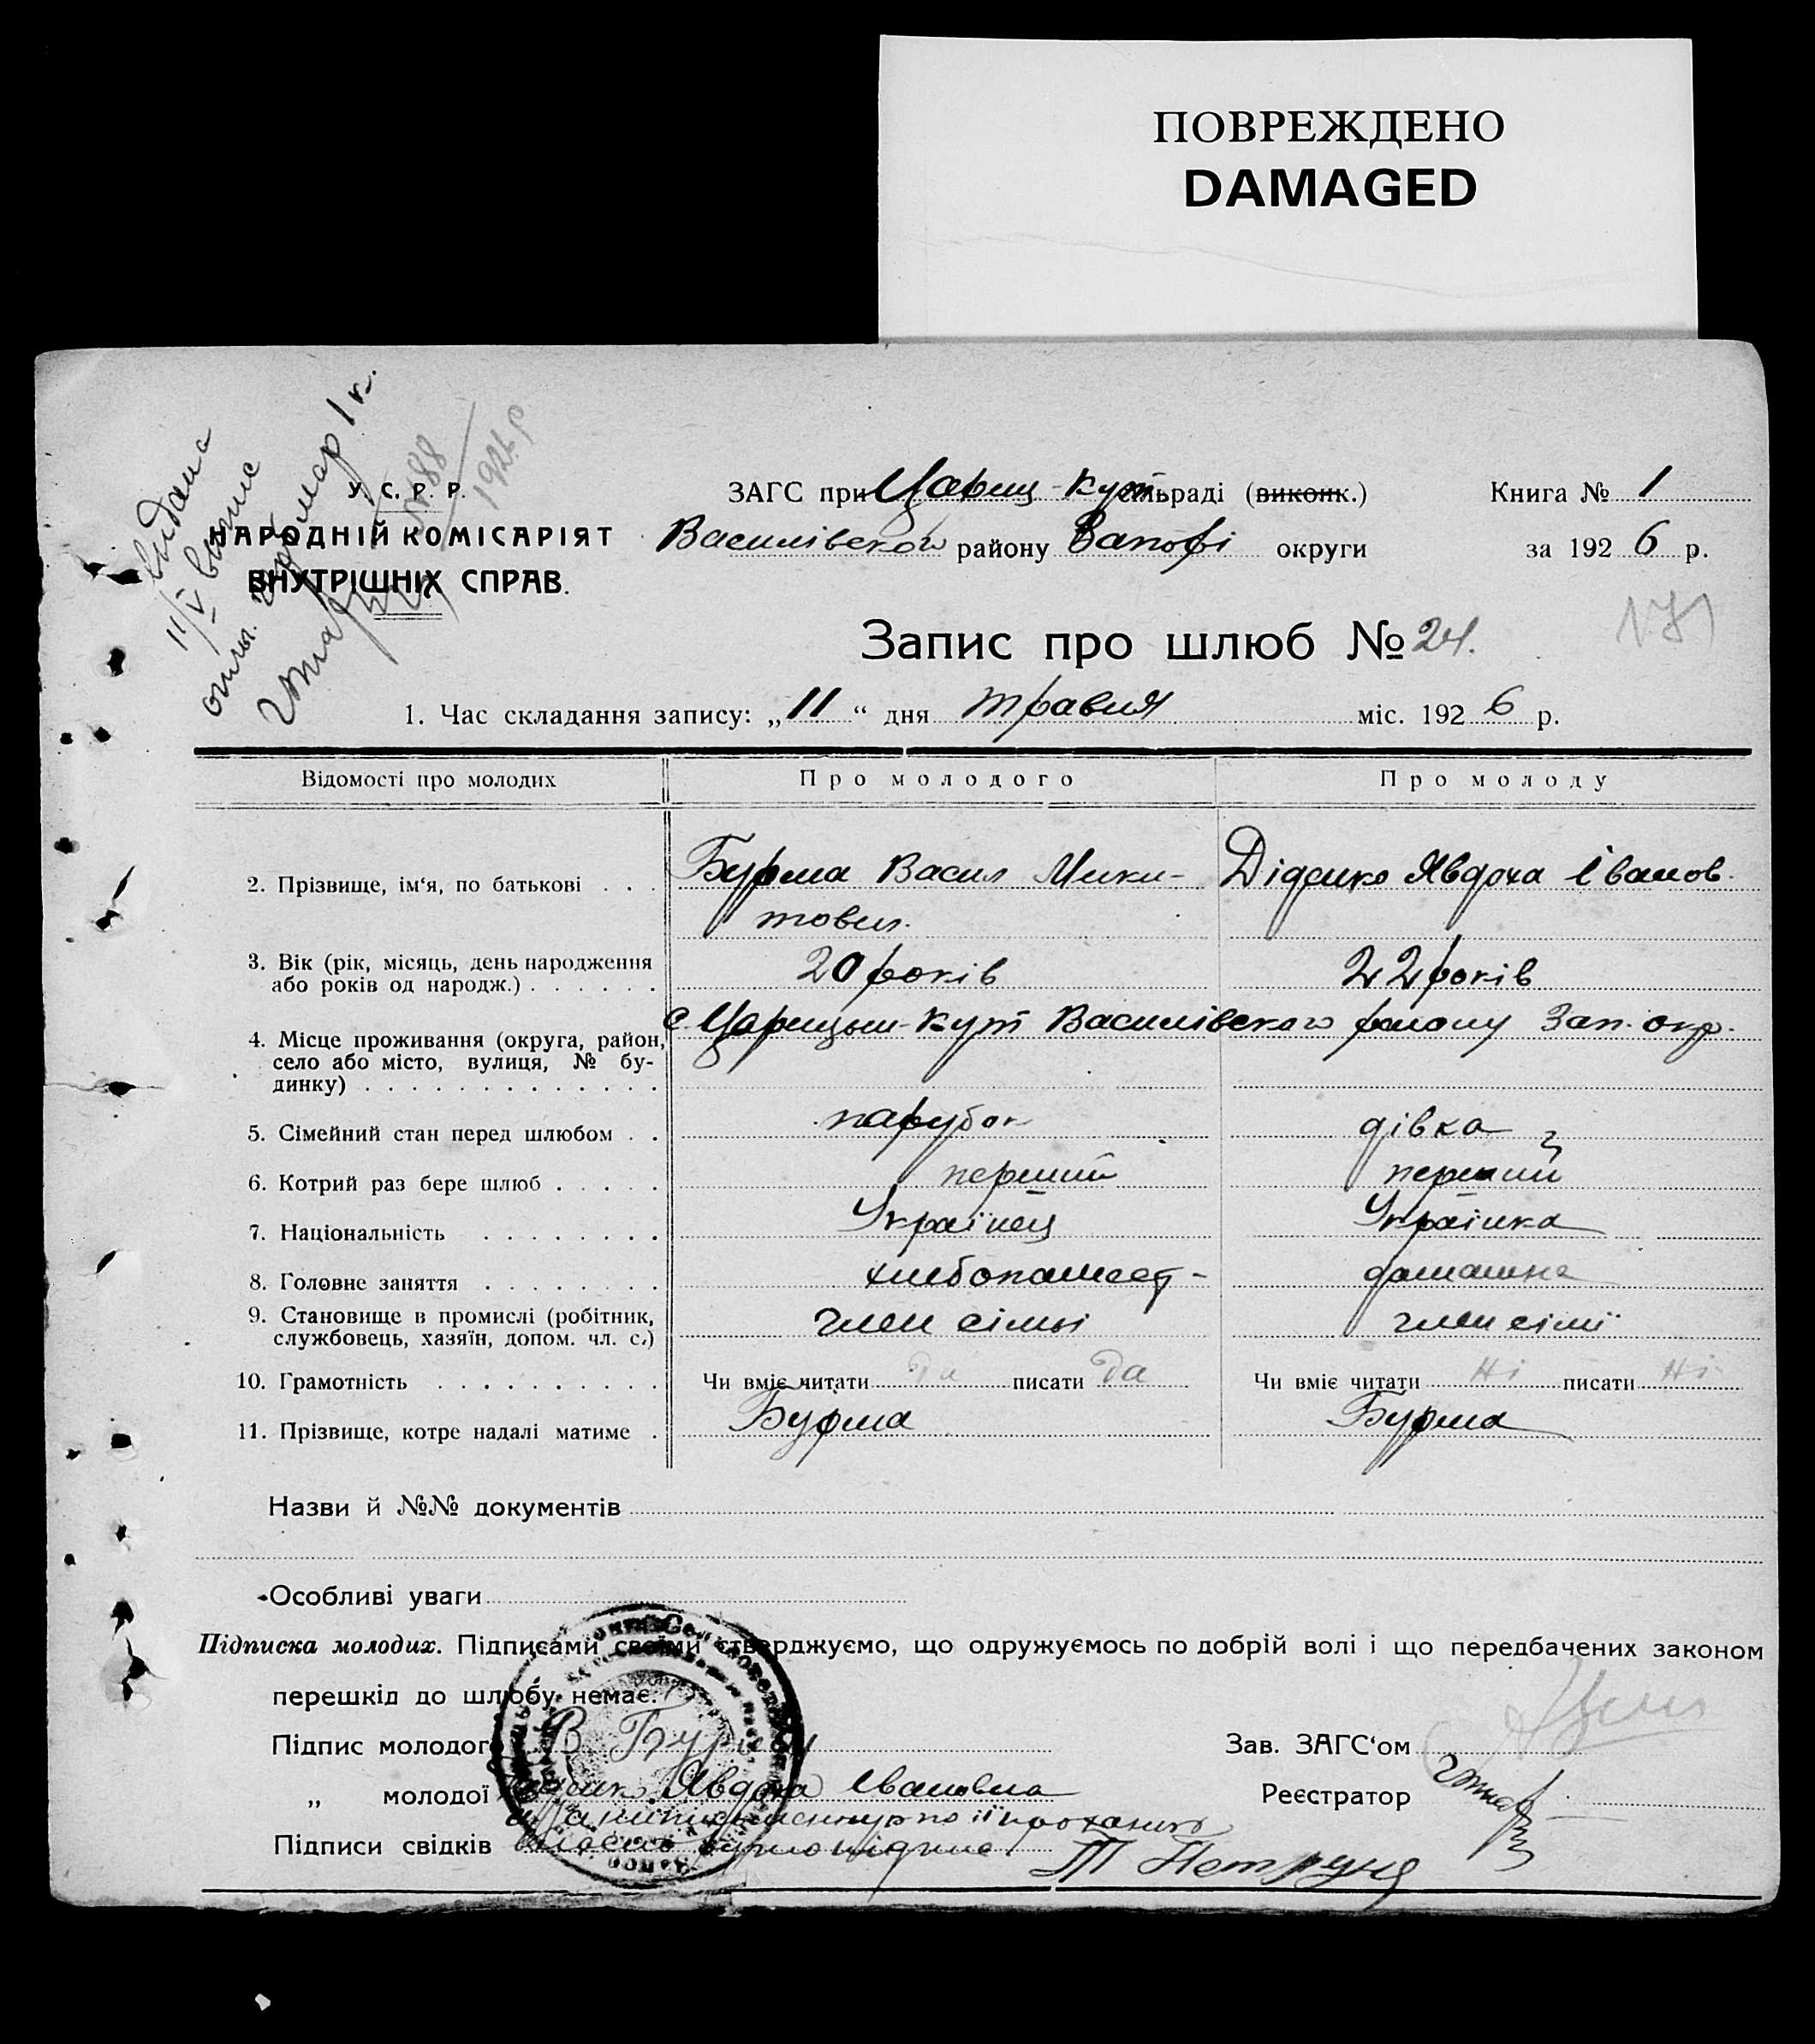 ПОВРЕЖДЕНО
DAMAGED
видана
11/V
№ 88
У. С. Р. Р.
НАРОДНІЙ КОМІСАРІЯТ
ВНУТРІШНІХ СПРАВ.
ЗАГС при Цариц-Кут. сільраді (виконк.) Книга № 1
Василівского району Запорі округи за 1926 р.
Запис про шлюб № 24.
1. Час складання запису: „11“ дня травня міс. 1926 р.
Відомості про молодих Про молодого Про молоду
2. Прізвище, ім'я, по батькові . . . Бурма Васил Мики- Діденко Явдоха Іванов.
товил.
3. Вік (рік, місяць, день народження
або років од народж.) . . . . . . 20 років 22 років
с Царицын-Кут Василівского району Зап. окр.
4. Місце проживання (округа, район,
село або місто, вулиця, № бу-
динку) . . . . . . . . . . . . .
5. Сімейний стан перед шлюбом . . парубок дівка
6. Котрий раз бере шлюб . . . . . перший перший
7. Національність . . . . . . . . Українец Українка
8. Головне заняття . . . . . . . . домашне
9. Становище в промислі (робітник,
службовець, хазяїн, допом. чл. с.) член сімьі член сімії
10. Грамотність . . . . . . . . . . Чи вміє читати Да писати Да Чи вміє читати Ні писати Ні
11. Прізвище, котре надалі матиме . Бурма Бурма
Назви й №№ документів
Особливі уваги
Підписка молодих. Підписами своїми стверджуємо, що одружуємось по добрій волі і що передбачених законом
перешкід до шлюбу немає.
Підпис молодого В Бурма Зав. ЗАГС'ом
„ молодої Діденко Явдоха Івановна Реєстратор
по її проханию
Підписи свідків Т Петруня